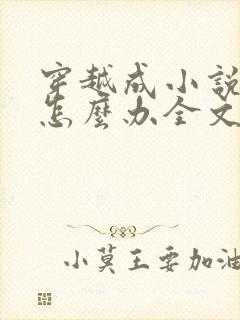 穿越成小說
怎麼办全文
小莫王要加油